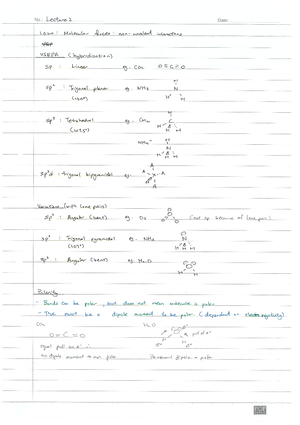 No. Lecture 2 Date:
VSEPR (hybridisation)
sp : Linear eg. CO₂ O=C=O
sp² : Trigonal planar eg. NH₃
(120°)
sp³ : Tetrahedral eg. CH₄
(109.5°)
NH₄⁺
sp³d : trigonal bipyramidal eg.
Variations (with lone pairs)
sp² : Angular (bent) eg. O₃ (not sp because of lone pair)
sp³ : Trigonal pyramidal eg. NH₃
(107°)
sp³ : Angular (bent) eg. H₂O
Polarity
- Bonds can be polar, but does not mean molecule is polar
- There must be a dipole moment to be polar (dependent on electronegativity)
CO₂ H₂O
O=C=O
equal pull on e⁻ ∴
no dipole moment ∴ non polar